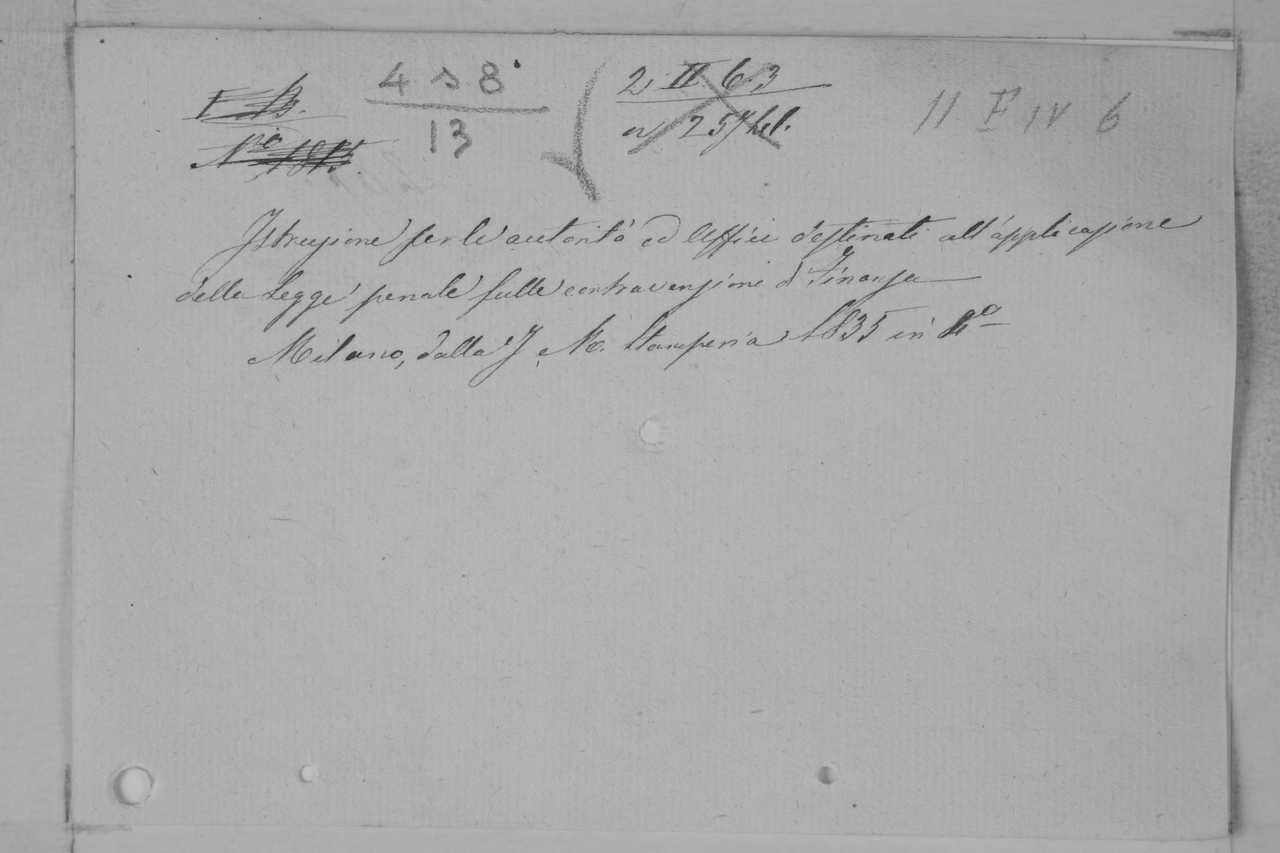 4 s 8
13
2 II 63
11 F IV 6
Istruzione per le autorità ed Uffici destinati all'applicazione
della Legge penale sulle contravenzioni di Finanza
Milano, dalla J. R. Stamperia 1835 in 4º